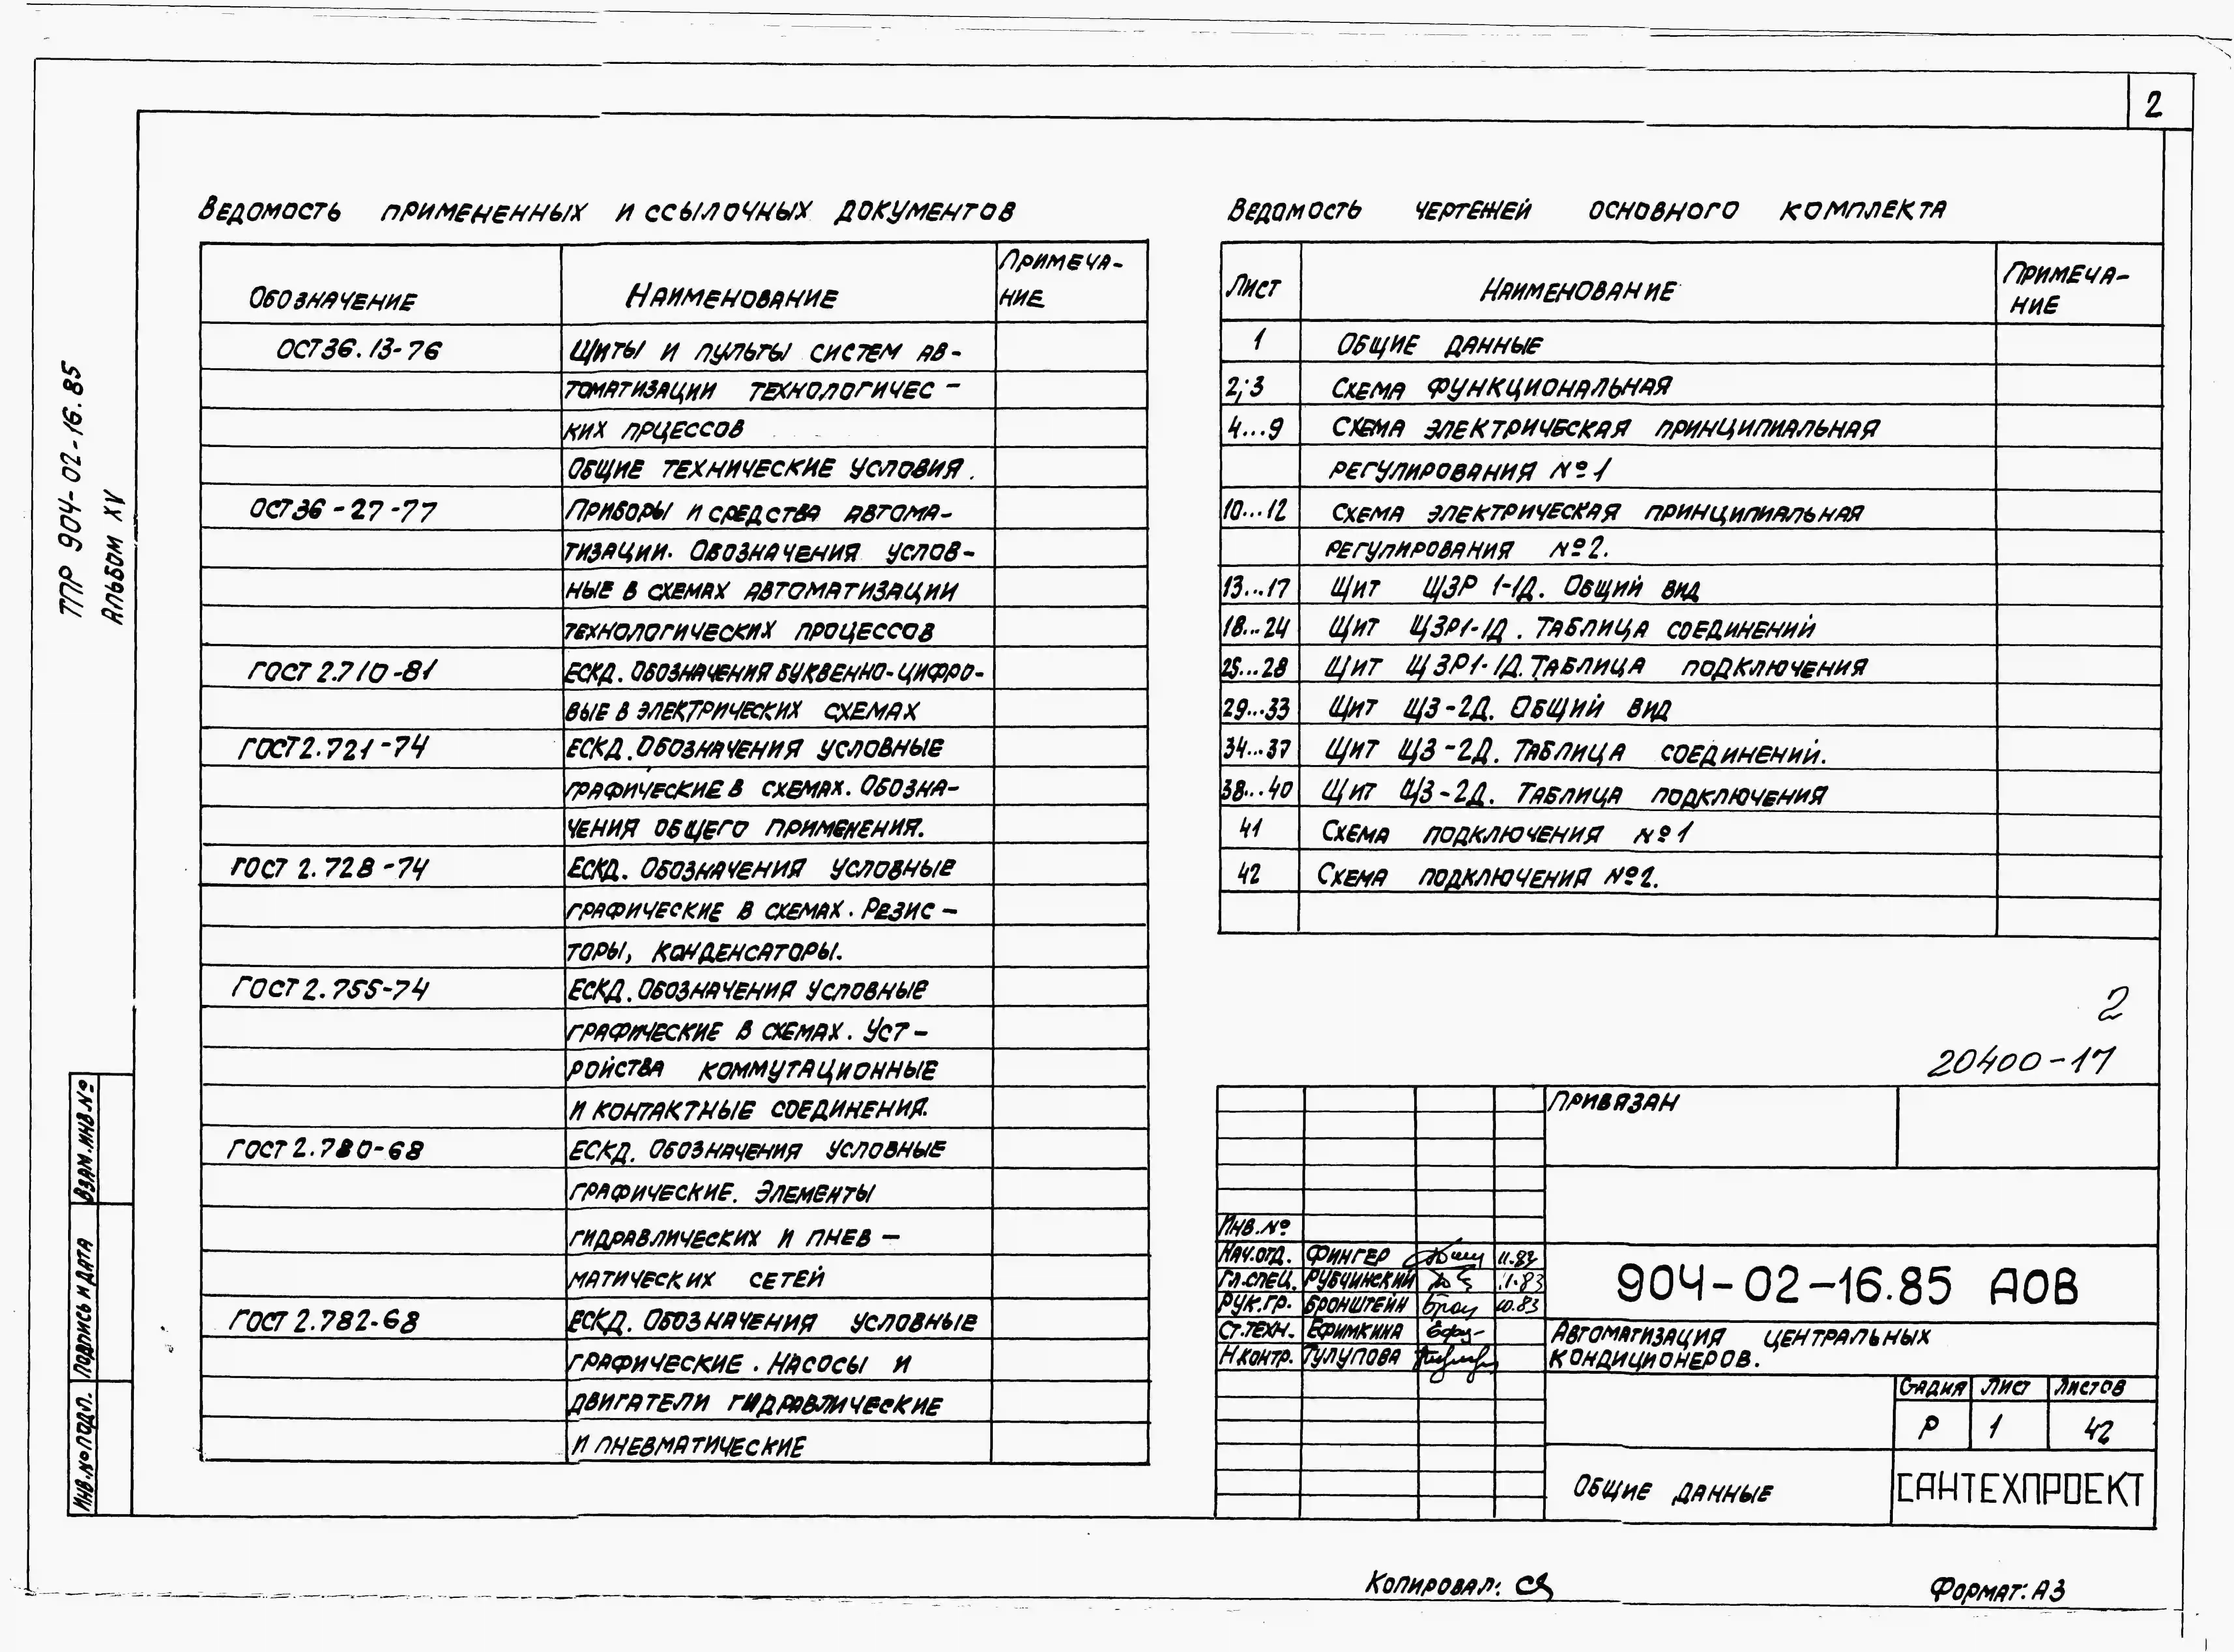 2
ТПР 904-02-16.85
Альбом XV
Ведомость примененных и ссылочных документов
Обозначение Наименование Примеча-
ние
ОСТ36.13-76 Щиты и пульты систем ав-
томатизации технологичес-
ких прцессов
Общие технические условия.
ОСТ36-27-77 Приборы и средства автома-
тизации. Обозначения услов-
ные в схемах автоматизации
технологических процессов
ГОСТ 2.710-81 ЕСКД. Обозначения буквенно-цифро-
вые в электрических схемах
ГОСТ2.721-74 ЕСКД. Обозначения условные
графические в схемах. Обозна-
чения общего применения.
ГОСТ 2.728-74 ЕСКД. Обозначения условные
графические в схемах. Резис-
торы, конденсаторы.
ГОСТ 2.755-74 ЕСКД. Обозначения условные
графические в схемах. Уст-
ройства коммутационные
и контактные соединения.
ГОСТ 2.780-68 ЕСКД. Обозначения условные
графические. Элементы
гидравлических и пнев-
матических сетей
ГОСТ 2.782-68 ЕСКД. Обозначения условные
графические. Насосы и
двигатели гидравлические
и пневматические
Ведомость чертежей основного комплекта
Лист Наименование Примеча-
ние
1 Общие данные
2;3 Схема функциональная
4...9 Схема электрическая принципиальная
регулирования №1
10...12 Схема электрическая принципиальная
регулирования №2.
13...17 Щит ЩЗР 1-1Д. Общий вид
18...24 Щит ЩЗР1-1Д. Таблица соединений
25...28 Щит ЩЗР1-1Д. Таблица подключения
29...33 Щит ЩЗ-2Д. Общий вид
34...37 Щит ЩЗ-2Д. Таблица соединений.
38...40 Щит ЩЗ-2Д. Таблица подключения
41 Схема подключения №1
42 Схема подключения №2.
2
20400-17
Привязан
Инв.№
Нач.отд. Фингер
Гл.спец. Рубчинский 11.83
Рук.гр. Бронштейн 10.83
Ст.техн. Ефимкина
Н.контр. Тулупова
904-02-16.85 АОВ
Автоматизация центральных
кондиционеров.
Стадия Лист Листов
Р 1 42
Общие данные
САНТЕХПРОЕКТ
Взам.инв.№
Подпись и дата
Инв.№подл.
Копировал:
Формат: А3